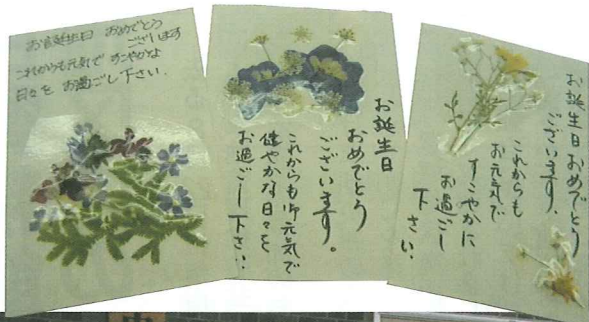 お誕生日 おめでとう
ございます
これからも元気で すこやかな
日々を お過ごし下さい.
お誕生日
おめでとう
ございます。
これからも御元気で
健やかな日々を
お過ごし下さい.
お誕生日おめでとう
ございます.
これからも
お元気で
すこやかに
お過ごし
下さい.